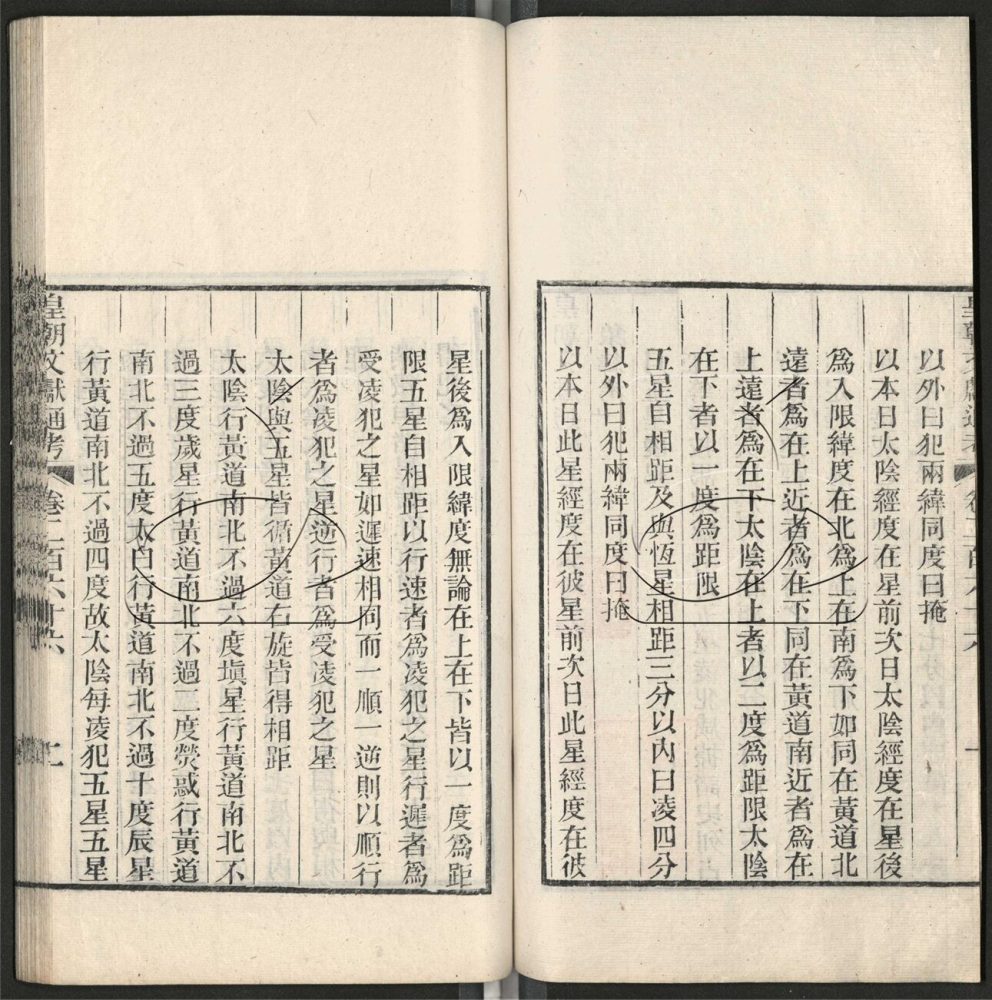 以外曰犯兩緯同度曰掩
以本日太陰經度在星前次日太陰經度在星後
爲入限緯度在北爲上在南爲下如同在黃道北
遠者爲在上近者爲在下同在黃道南近者爲在
上遠者爲在下太陰在上者以二度爲距限太陰
在下者以一度爲距限
五星自相距及與恆星相距三分以內曰凌四分
以外曰犯兩緯同度曰掩
以本日此星經度在彼星前次日此星經度在彼
星後爲入限緯度無論在上在下皆以一度爲距
限五星自相距以行速者爲凌犯之星行遲者爲
受凌犯之星如遲速相同而一順一逆則以順行
者爲凌犯之星逆行者爲受凌犯之星
太陰與五星皆循黃道右旋皆得相距
太陰行黃道南北不過六度塡星行黃道南北不
過三度歲星行黃道南北不過二度熒惑行黃道
南北不過五度太白行黃道南北不過十度辰星
行黃道南北不過四度故太陰每凌犯五星五星
皇朝文獻通考 卷二百六十六